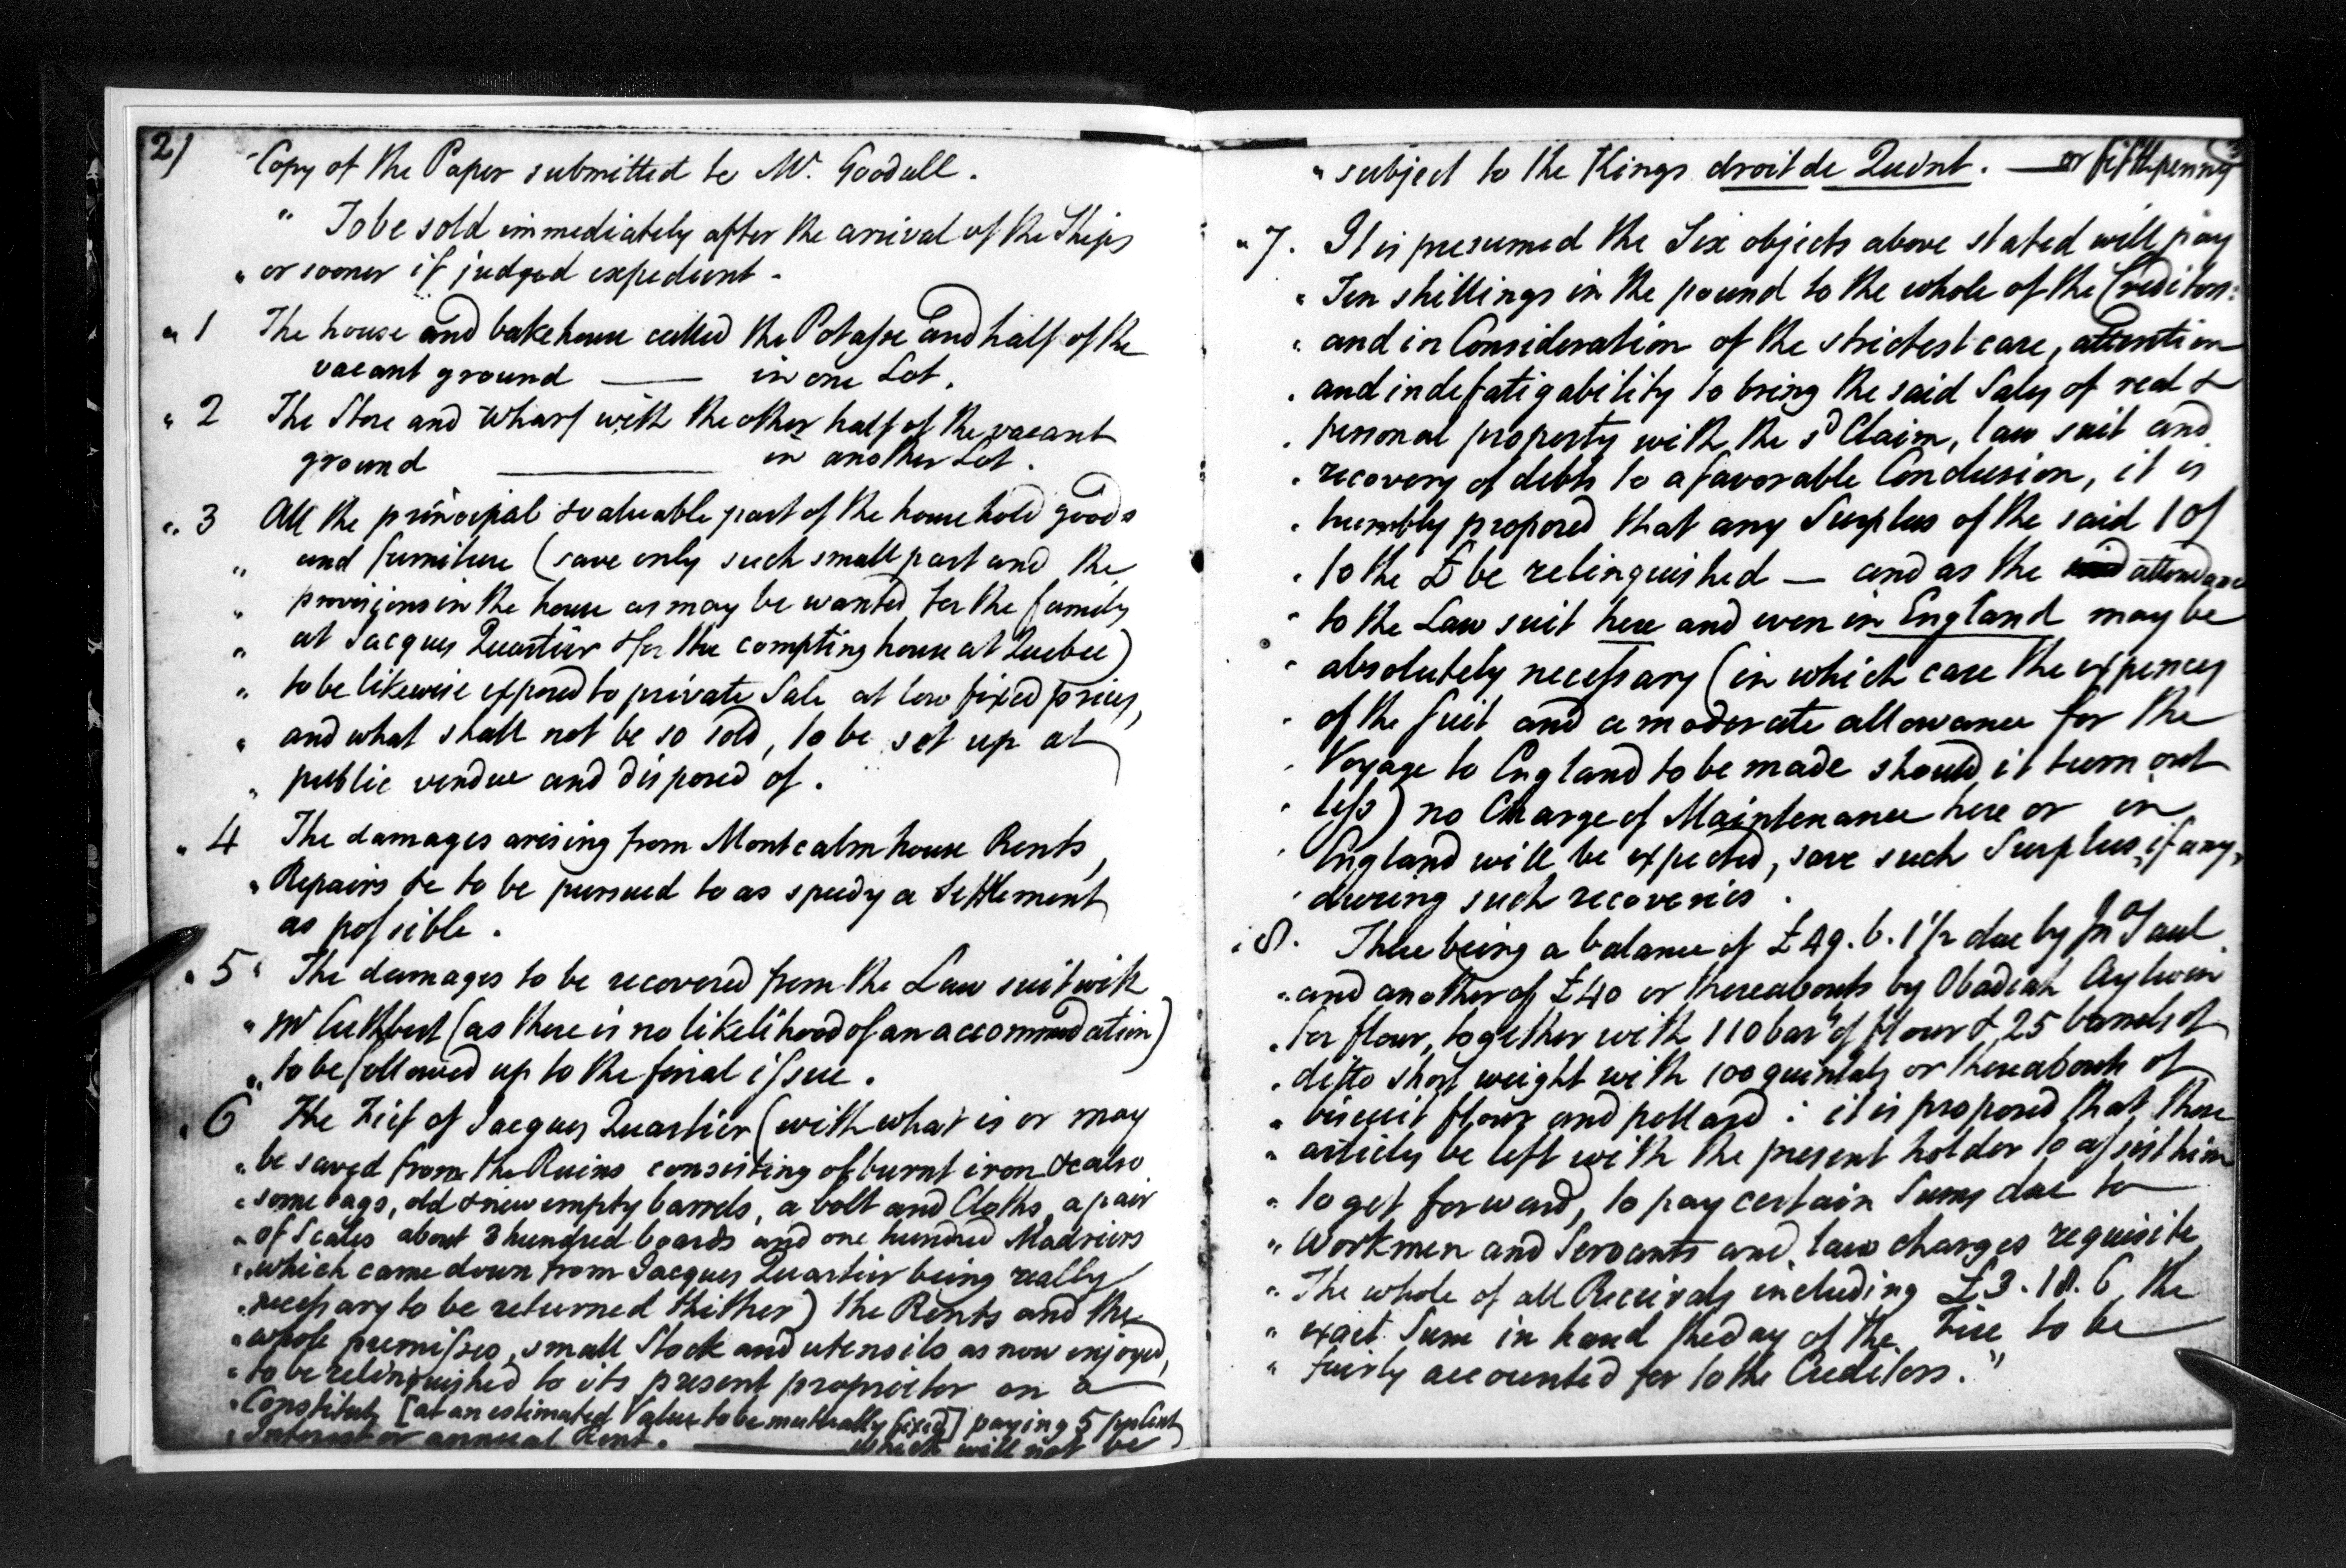 2)
"Copy of the Paper submitted to Mr. Goodall.
" To be sold immediately after the arrival of the Ships
" or sooner if judged expedient -
" 1 The house and bakehouse called the Potasse and half of the
vacant ground —— in one Lot.
" 2 The Store and Wharf with the other half of the vacant
ground —— in another Lot.
" 3 All the principal & valuable part of the household goods
" and furniture (save only such small part and the
" provisions in the house as may be wanted for the family
" at Jacques Quartier & for the compting house at Quebec)
" to be likewise exposed to private Sale at low fixed prices,
" and what shall not be so sold, to be set up at
" public vendue and disposed of.
" 4 The damages arising from Montcalm house Rents,
" Repairs &c to be pursued to as speedy a Settlement
as possible.
" 5 " The damages to be recovered from the Law suit with
" Mr Cuthbert (as there is no likelihood of an accommodation)
" to be followed up to the final issue.
" 6 The Fief of Jacques Quartier (with what is or may
" be saved from the Ruins consisting of burnt iron &c also
" some bags, old & new empty barrels, a bolt and Cloths, a pair
" of Scales about 3 hundred boards and one hundred Madriers
" which came down from Jacques Quartier being really
" necessary to be returned thither) the Rents and the
" whole premisses, small Stock and utensils as now enjoyed,
" to be relinquished to its present proprietor on a
" Constitut, [at an estimated Value to be mutually fixed] paying 5 pr Cent
" Interest or annual Rent. —— which will not be
" subject to the Kings droit de Quint. — or fifth penny
" 7. It is presumed the Six objects above stated will pay
" Ten shillings in the pound to the whole of the Creditors:
" and in Consideration of the strictest care, attention
" and indefatigability to bring the said Sales of real &
" personal property with the sd Claim, law suit and
" recovery of debts to a favorable Conclusion, it is
" humbly proposed that any Surplus of the said 10/
" to the £ be relinquished — and as the attendance
" to the Law suit here and even in England may be
" absolutely necessary (in which case the expences
" of the suit and a moderate allowance for the
" Voyage to England to be made should it turn out
" less) no Charge of Maintenance here or in
" England will be expected, save such Surplus, if any,
" during such recoveries.
" 8. There being a balance of £49. 6. 1½ due by Jno Saul
" and another of £40 or thereabouts by Obadiah Aylwin
" for flour, together with 110 barls of flour & 25 barrels of
" ditto short weight with 100 quintals or thereabouts of
" biscuit flour and pollard: it is proposed that these
" articles be left with the present holder to assist him
" to get forward, to pay certain Sums due to
" Workmen and Servants and law charges requisite
" The whole of all Receivals including £3. 18. 6 the
" exact Sum in hand the day of the Fire to be
" fairly accounted for to the Creditors."